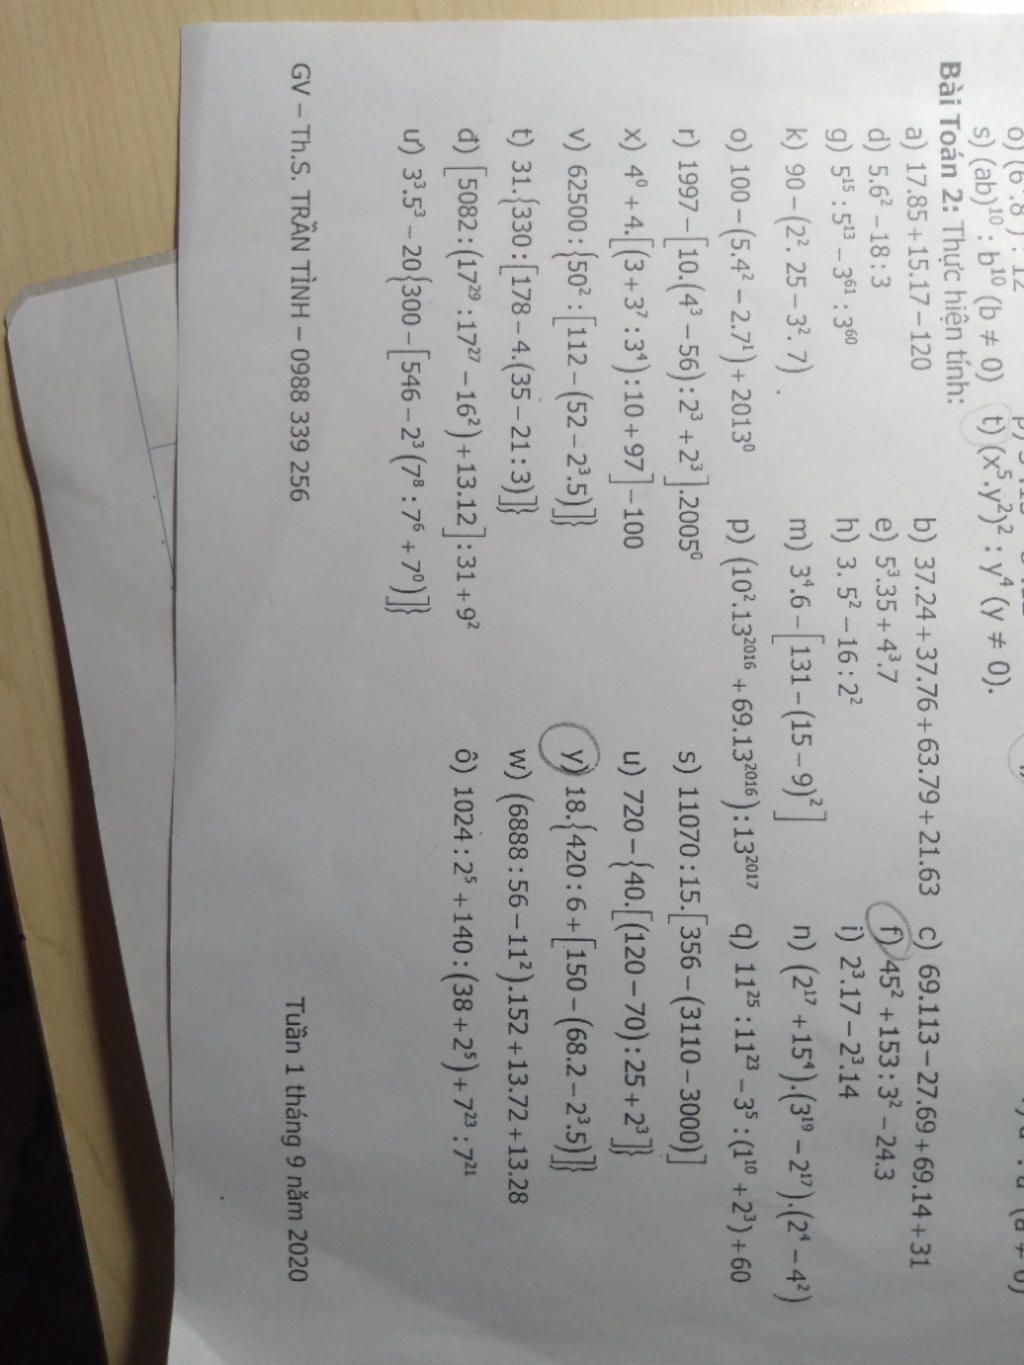 s) (ab)¹⁰ : b¹⁰ (b ≠ 0) t) (x⁵.y²)² : y⁴ (y ≠ 0).
Bài Toán 2: Thực hiện tính:
a) 17.85 + 15.17 – 120 b) 37.24 + 37.76 + 63.79 + 21.63 c) 69.113 – 27.69 + 69.14 + 31
d) 5.6² – 18 : 3 e) 5³.35 + 4³.7 f) 45² + 153 : 3² – 24.3
g) 5¹⁵ : 5¹³ – 3⁶¹ : 3⁶⁰ h) 3. 5² – 16 : 2² i) 2³.17 – 2³.14
k) 90 – (2². 25 – 3². 7) m) 3⁴.6 – [131 – (15 – 9)²] n) (2¹⁷ + 15⁴).(3¹⁹ – 2¹⁷).(2⁴ – 4²)
o) 100 – (5.4² – 2.7¹) + 2013⁰ p) (10².13²⁰¹⁶ + 69.13²⁰¹⁶) : 13²⁰¹⁷ q) 11²⁵ : 11²³ – 3⁵ : (1¹⁰ + 2³) + 60
r) 1997 – [10.(4³ – 56) : 2³ + 2³].2005⁰ s) 11070 : 15.[356 – (3110 – 3000)]
x) 4⁰ + 4.[(3 + 3⁷ : 3⁴) : 10 + 97] – 100 u) 720 – {40.[(120 – 70) : 25 + 2³]}
v) 62500 : {50² : [112 – (52 – 2³.5)]} y) 18.{420 : 6 + [150 – (68.2 – 2³.5)]}
t) 31.{330 : [178 – 4.(35 – 21 : 3)]} w) (6888 : 56 – 11²).152 + 13.72 + 13.28
đ) [5082 : (17²⁹ : 17²⁷ – 16²) + 13.12] : 31 + 9² ô) 1024 : 2⁵ + 140 : (38 + 2⁵) + 7²³ : 7²¹
ư) 3³.5³ – 20{300 – [546 – 2³(7⁸ : 7⁶ + 7⁰)]}
GV – Th.S. TRẦN TÌNH – 0988 339 256 Tuần 1 tháng 9 năm 2020